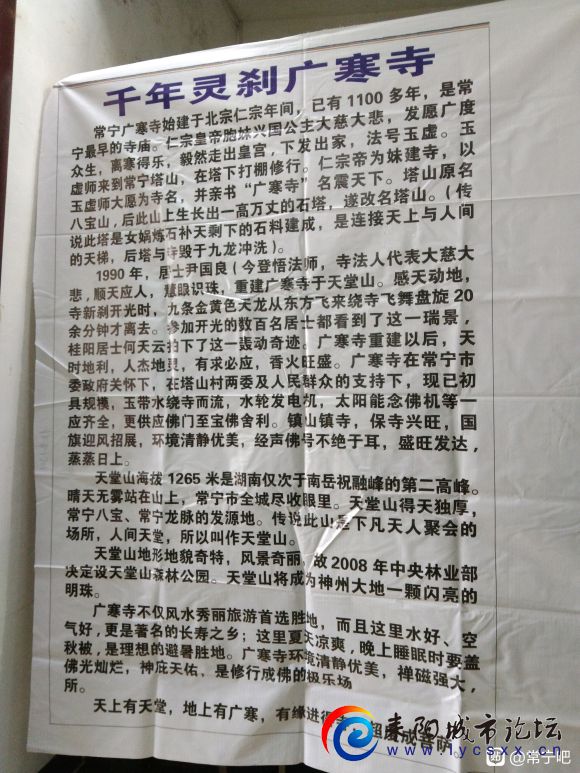 千年灵刹广寒寺
常宁广寒寺始建于北宗仁宗年间，已有1100多年，是常
宁最早的寺庙。仁宗皇帝胞妹兴国公主大慈大悲，发愿广度
众生，离寒得乐，毅然走出皇宫，下发出家，法号玉虚。玉
虚师来到常宁塔山，在塔下打棚修行。仁宗帝为妹建寺，以
玉虚师大愿为寺名，并亲书“广寒寺”名震天下。塔山原名
八宝山，后此山上生长出一高万丈的石塔，遂改名塔山。（传
说此塔是女娲炼石补天剩下的石料建成，是连接天上与人间
的天梯，后塔与寺毁于九龙冲洗）。
1990年，居士尹国良（今登悟法师，寺法人代表大慈大
悲，顺天应人，慧眼识珠，重建广寒寺于天堂山。感天动地，
寺新刹开光时，九条金黄色天龙从东方飞来绕寺飞舞盘旋20
余分钟才离去。参加开光的数百名居士都看到了这一瑞景，
桂阳居士何天云拍下了这一轰动奇迹。广寒寺重建以后，天
时地利，人杰地灵，有求必应，香火旺盛。广寒寺在常宁市
委政府关怀下，在塔山村两委及人民群众的支持下，现已初
具规模，玉带水绕寺而流，水轮发电机，太阳能念佛机等一
应齐全，更供应佛门至宝佛舍利。镇山镇寺，保寺兴旺，国
旗迎风招展，环境清静优美，经声佛号不绝于耳，盛旺发达，
蒸蒸日上。
天堂山海拔1265米是湖南仅次于南岳祝融峰的第二高峰。
晴天无雾站在山上，常宁市全城尽收眼里。天堂山得天独厚，
常宁八宝、常宁龙脉的发源地。传说此山是下凡天人聚会的
场所，人间天堂，所以叫作天堂山。
天堂山地形地貌奇特，风景奇丽，故2008年中央林业部
决定设天堂山森林公园。天堂山将成为神州大地一颗闪亮的
明珠。
广寒寺不仅风水秀丽旅游首选胜地，而且这里水好、空
气好，更是著名的长寿之乡；这里夏天凉爽，晚上睡眠时要盖
秋被，是理想的避暑胜地。广寒寺环境清静优美，禅磁强大，
佛光灿烂，神庇天佑，是修行成佛的极乐场
所。
天上有天堂，地上有广寒，有缘进得
耒阳城市论坛
www.lysxx.cn
@常宁吧